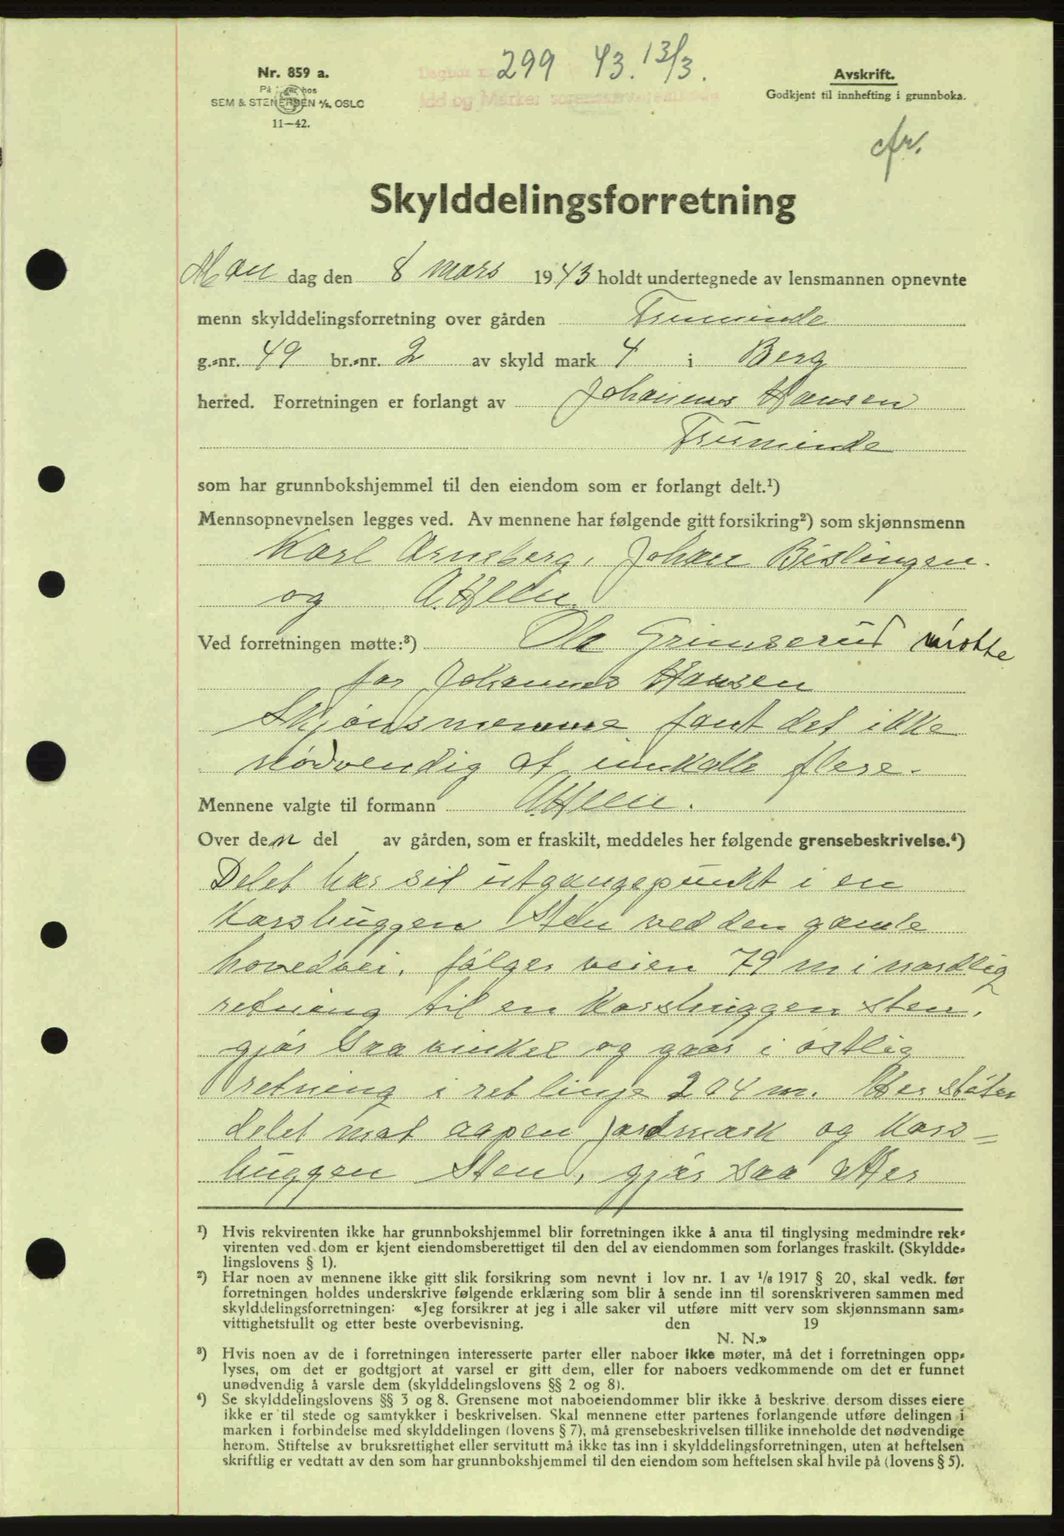 Nr. 859 a.
På lager hos
SEM & STENERSEN A/S, OSLO
11—42.
299 43. 13/3.
Idd og Marker sorenskriverembede
Avskrift.
Godkjent til innhefting i grunnboka.
cfr.
Skylddelingsforretning
Man dag den 8 mars 1943 holdt undertegnede av lensmannen opnevnte
menn skylddelingsforretning over gården
g.-nr. 49 br.-nr. 2 av skyld mark 4 i Berg
herred. Forretningen er forlangt av Johannes Hansen
som har grunnbokshjemmel til den eiendom som er forlangt delt.¹)
Mennsopnevnelsen legges ved. Av mennene har følgende gitt forsikring²) som skjønnsmenn
Karl Arneberg, Johan Bislingen.
og A. Heen.
Ved forretningen møtte:³) Ole Grimserud møtte
for Johannes Hansen
Skjønsmennene fant det ikke
nødvendig at innkalle flere.
Mennene valgte til formann A. Heen.
Over den del av gården, som er fraskilt, meddeles her følgende grensebeskrivelse.⁴)
Delet har sit utgangspunkt i en
Korshuggen Sten ved den gamle
hovedvei, følger veien 79 m i nordlig
retning til en Korshuggen sten,
gjør saa vinkel og gaar i østlig
retning i ret linje 204 m. Her støter
delet mot aapen jordmark og Kors=
huggen Sten, gjør saa etter
¹) Hvis rekvirenten ikke har grunnbokshjemmel blir forretningen ikke å anta til tinglysing medmindre rek-
virenten ved dom er kjent eiendomsberettiget til den del av eiendommen som forlanges fraskilt. (Skyldde-
lingslovens § 1).
²) Har noen av mennene ikke gitt slik forsikring som nevnt i lov nr. 1 av 1/8 1917 § 20, skal vedk. før
forretningen holdes underskrive følgende erklæring som blir å sende inn til sorenskriveren sammen med
skylddelingsforretningen: «Jeg forsikrer at jeg i alle saker vil utføre mitt verv som skjønnsmann sam-
vittighetsfullt og etter beste overbevisning. den 19
N. N.»
³) Hvis noen av de i forretningen interesserte parter eller naboer ikke møter, må det i forretningen opp-
lyses, om det er godtgjort at varsel er gitt dem, eller for naboers vedkommende om det er funnet
unødvendig å varsle dem (skylddelingslovens §§ 2 og 8).
⁴) Se skylddelingslovens §§ 3 og 8. Grensene mot naboeiendommer blir ikke å beskrive dersom disses eiere
ikke er til stede og samtykker i beskrivelsen. Skal mennene etter partenes forlangende utføre delingen i
marken i forbindelse med skylddelingen (lovens § 7), må grensebeskrivelsen tillike inneholde det nødvendige
herom. Stiftelse av bruksrettighet eller servitutt må ikke tas inn i skylddelingsforretningen, uten at heftelsen
skriftlig er vedtatt av den som har grunnbokshjemmel til den eiendom som heftelsen skal hvile på (lovens § 5).